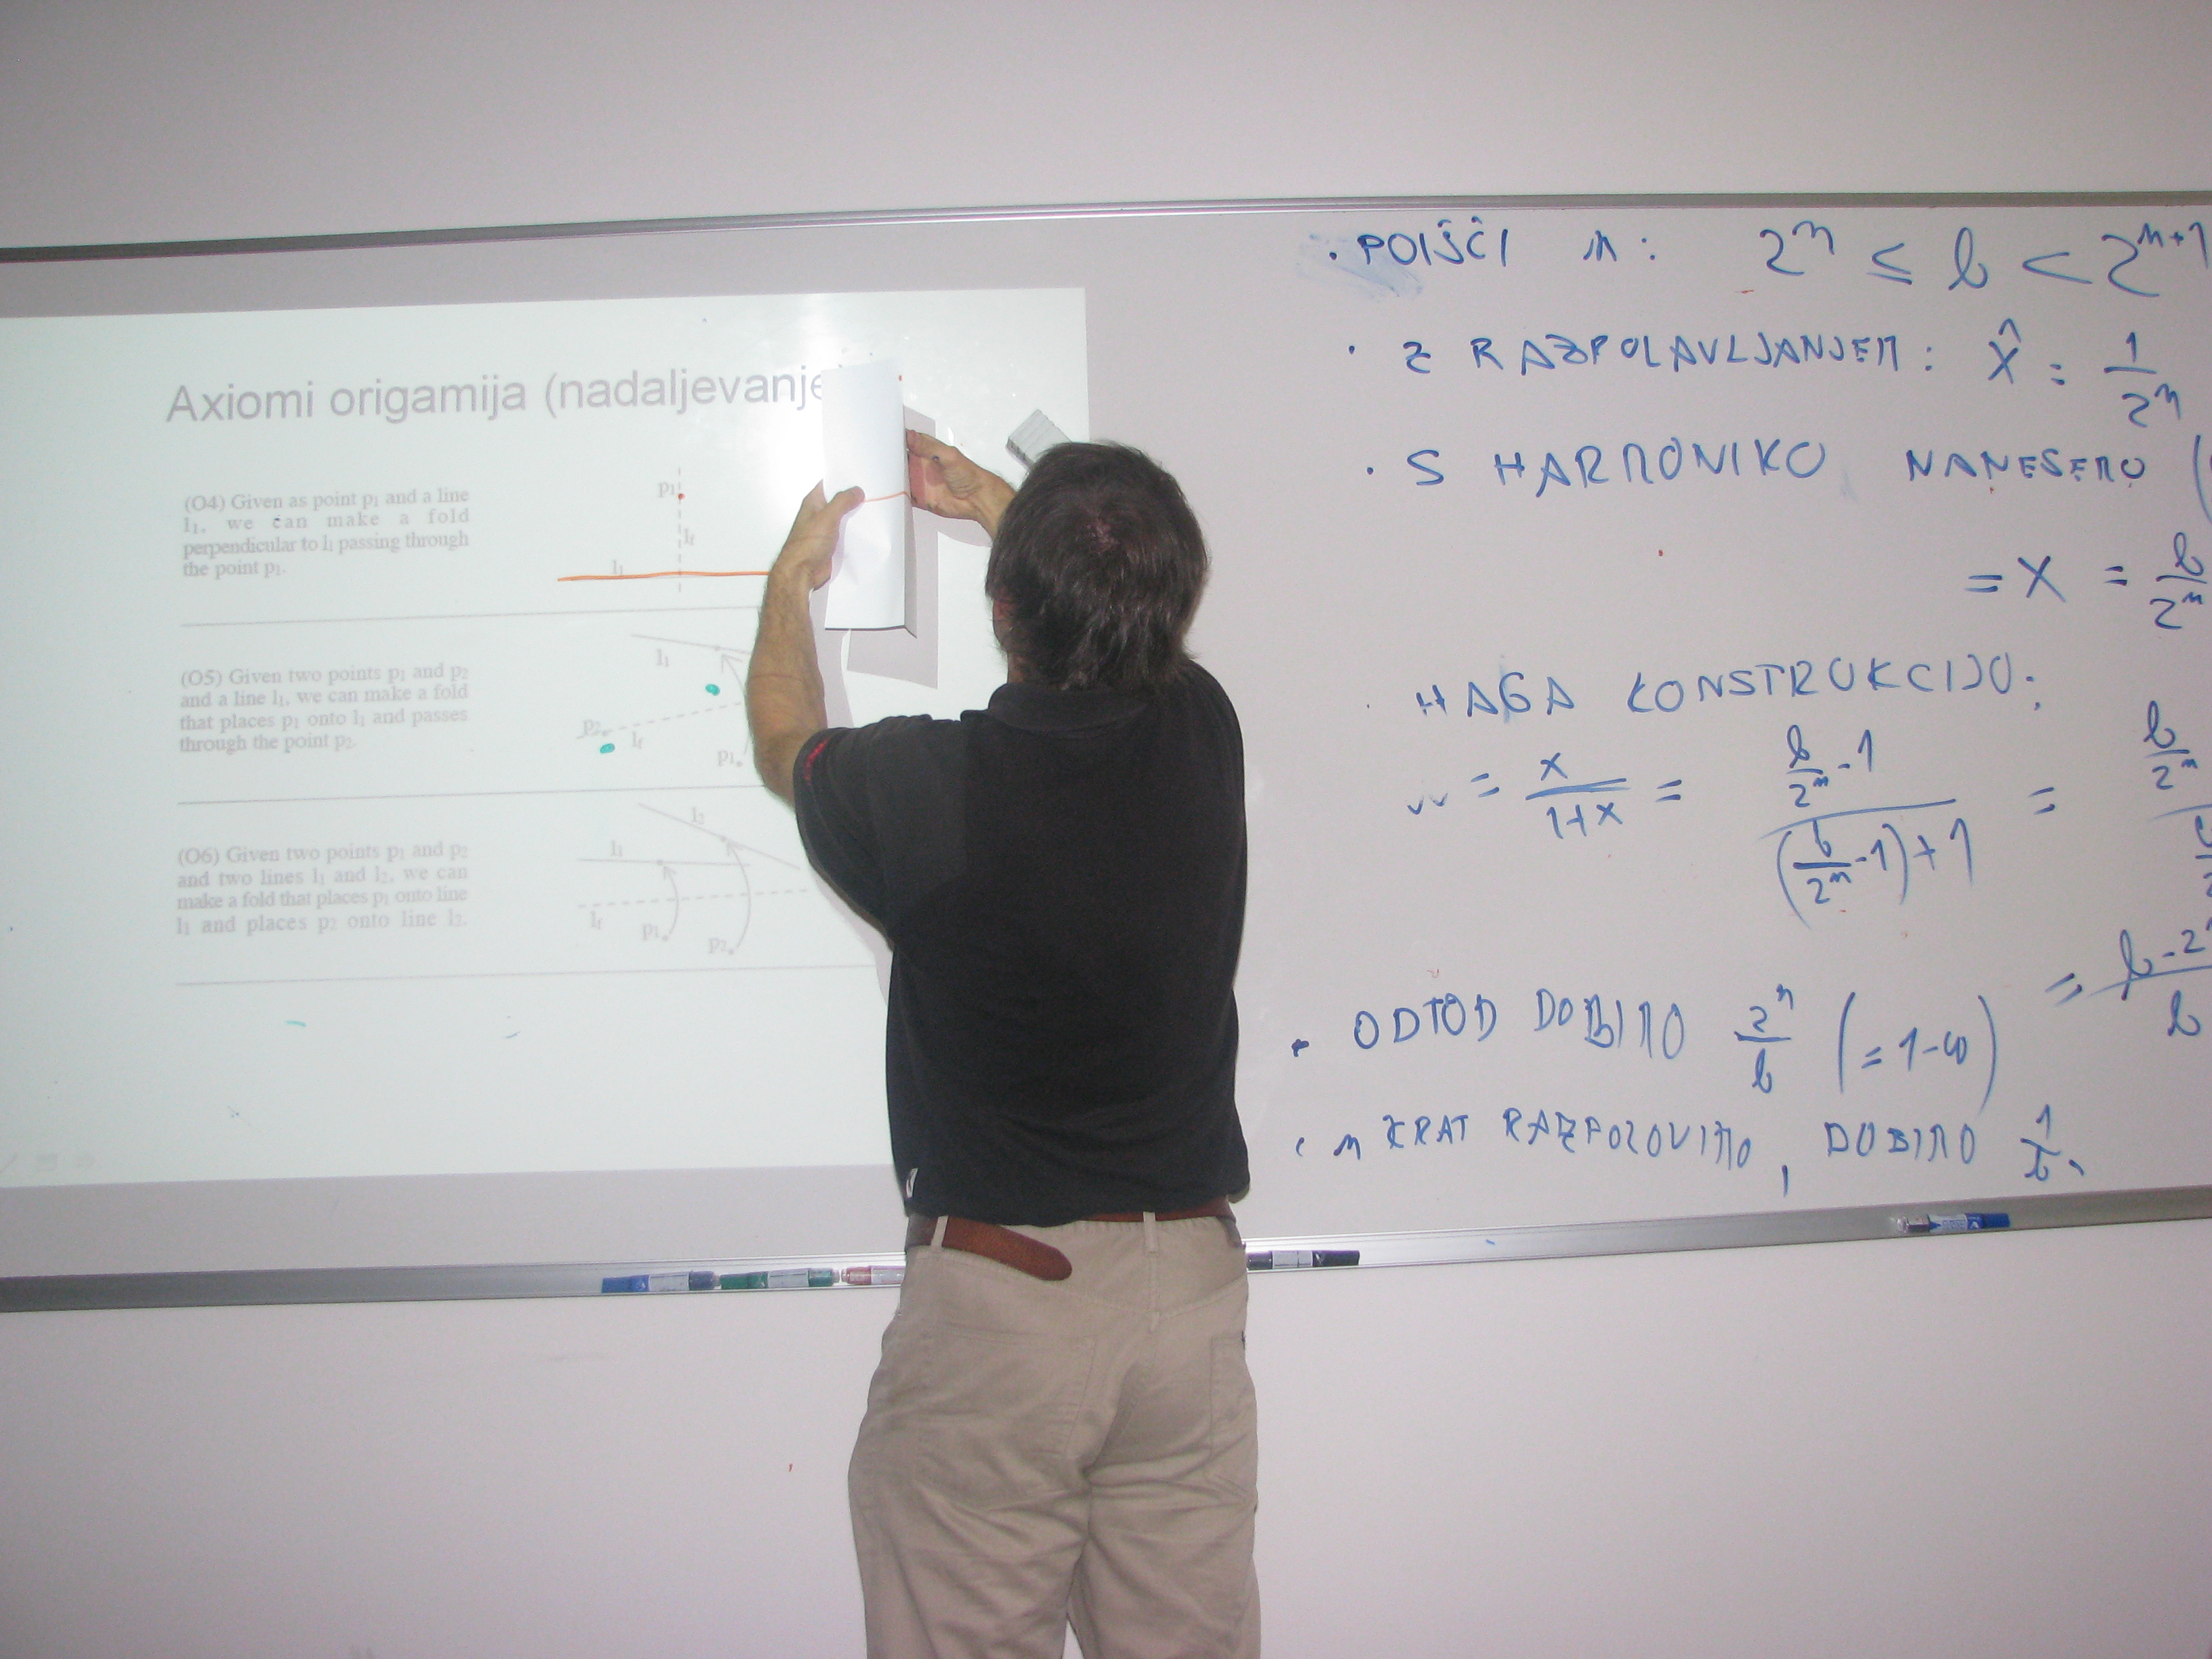 Axiomi origamija (nadaljevanje
(O4) Given as point p₁ and a line
l₁, we can make a fold
perpendicular to l₁ passing through
the point p₁.
p₁
l_f
l₁
(O5) Given two points p₁ and p₂
and a line l₁, we can make a fold
that places p₁ onto l₁ and passes
through the point p₂.
l₁
p₂
l_f
p₁
(O6) Given two points p₁ and p₂
and two lines l₁ and l₂, we can
make a fold that places p₁ onto line
l₁ and places p₂ onto line l₂.
l₂
l₁
l_f
p₁
p₂
· POIŠČI n: 2ⁿ ≤ b < 2ⁿ⁺¹
· Z RAZPOLAVLJANJEM: x̂ = 1/2ⁿ
· S HARMONIKO NANESEMO (
= X = b/2ⁿ
· HAGA KONSTRUKCIJO:
w = x/(1+x) = (b/2ⁿ - 1)/((b/2ⁿ - 1) + 1) = b/2ⁿ
= b-2ⁿ/b
· ODTOD DOBIMO 2ⁿ/b (= 1-w)
· n KRAT RAZPOLOVIMO, DOBIMO 1/b.